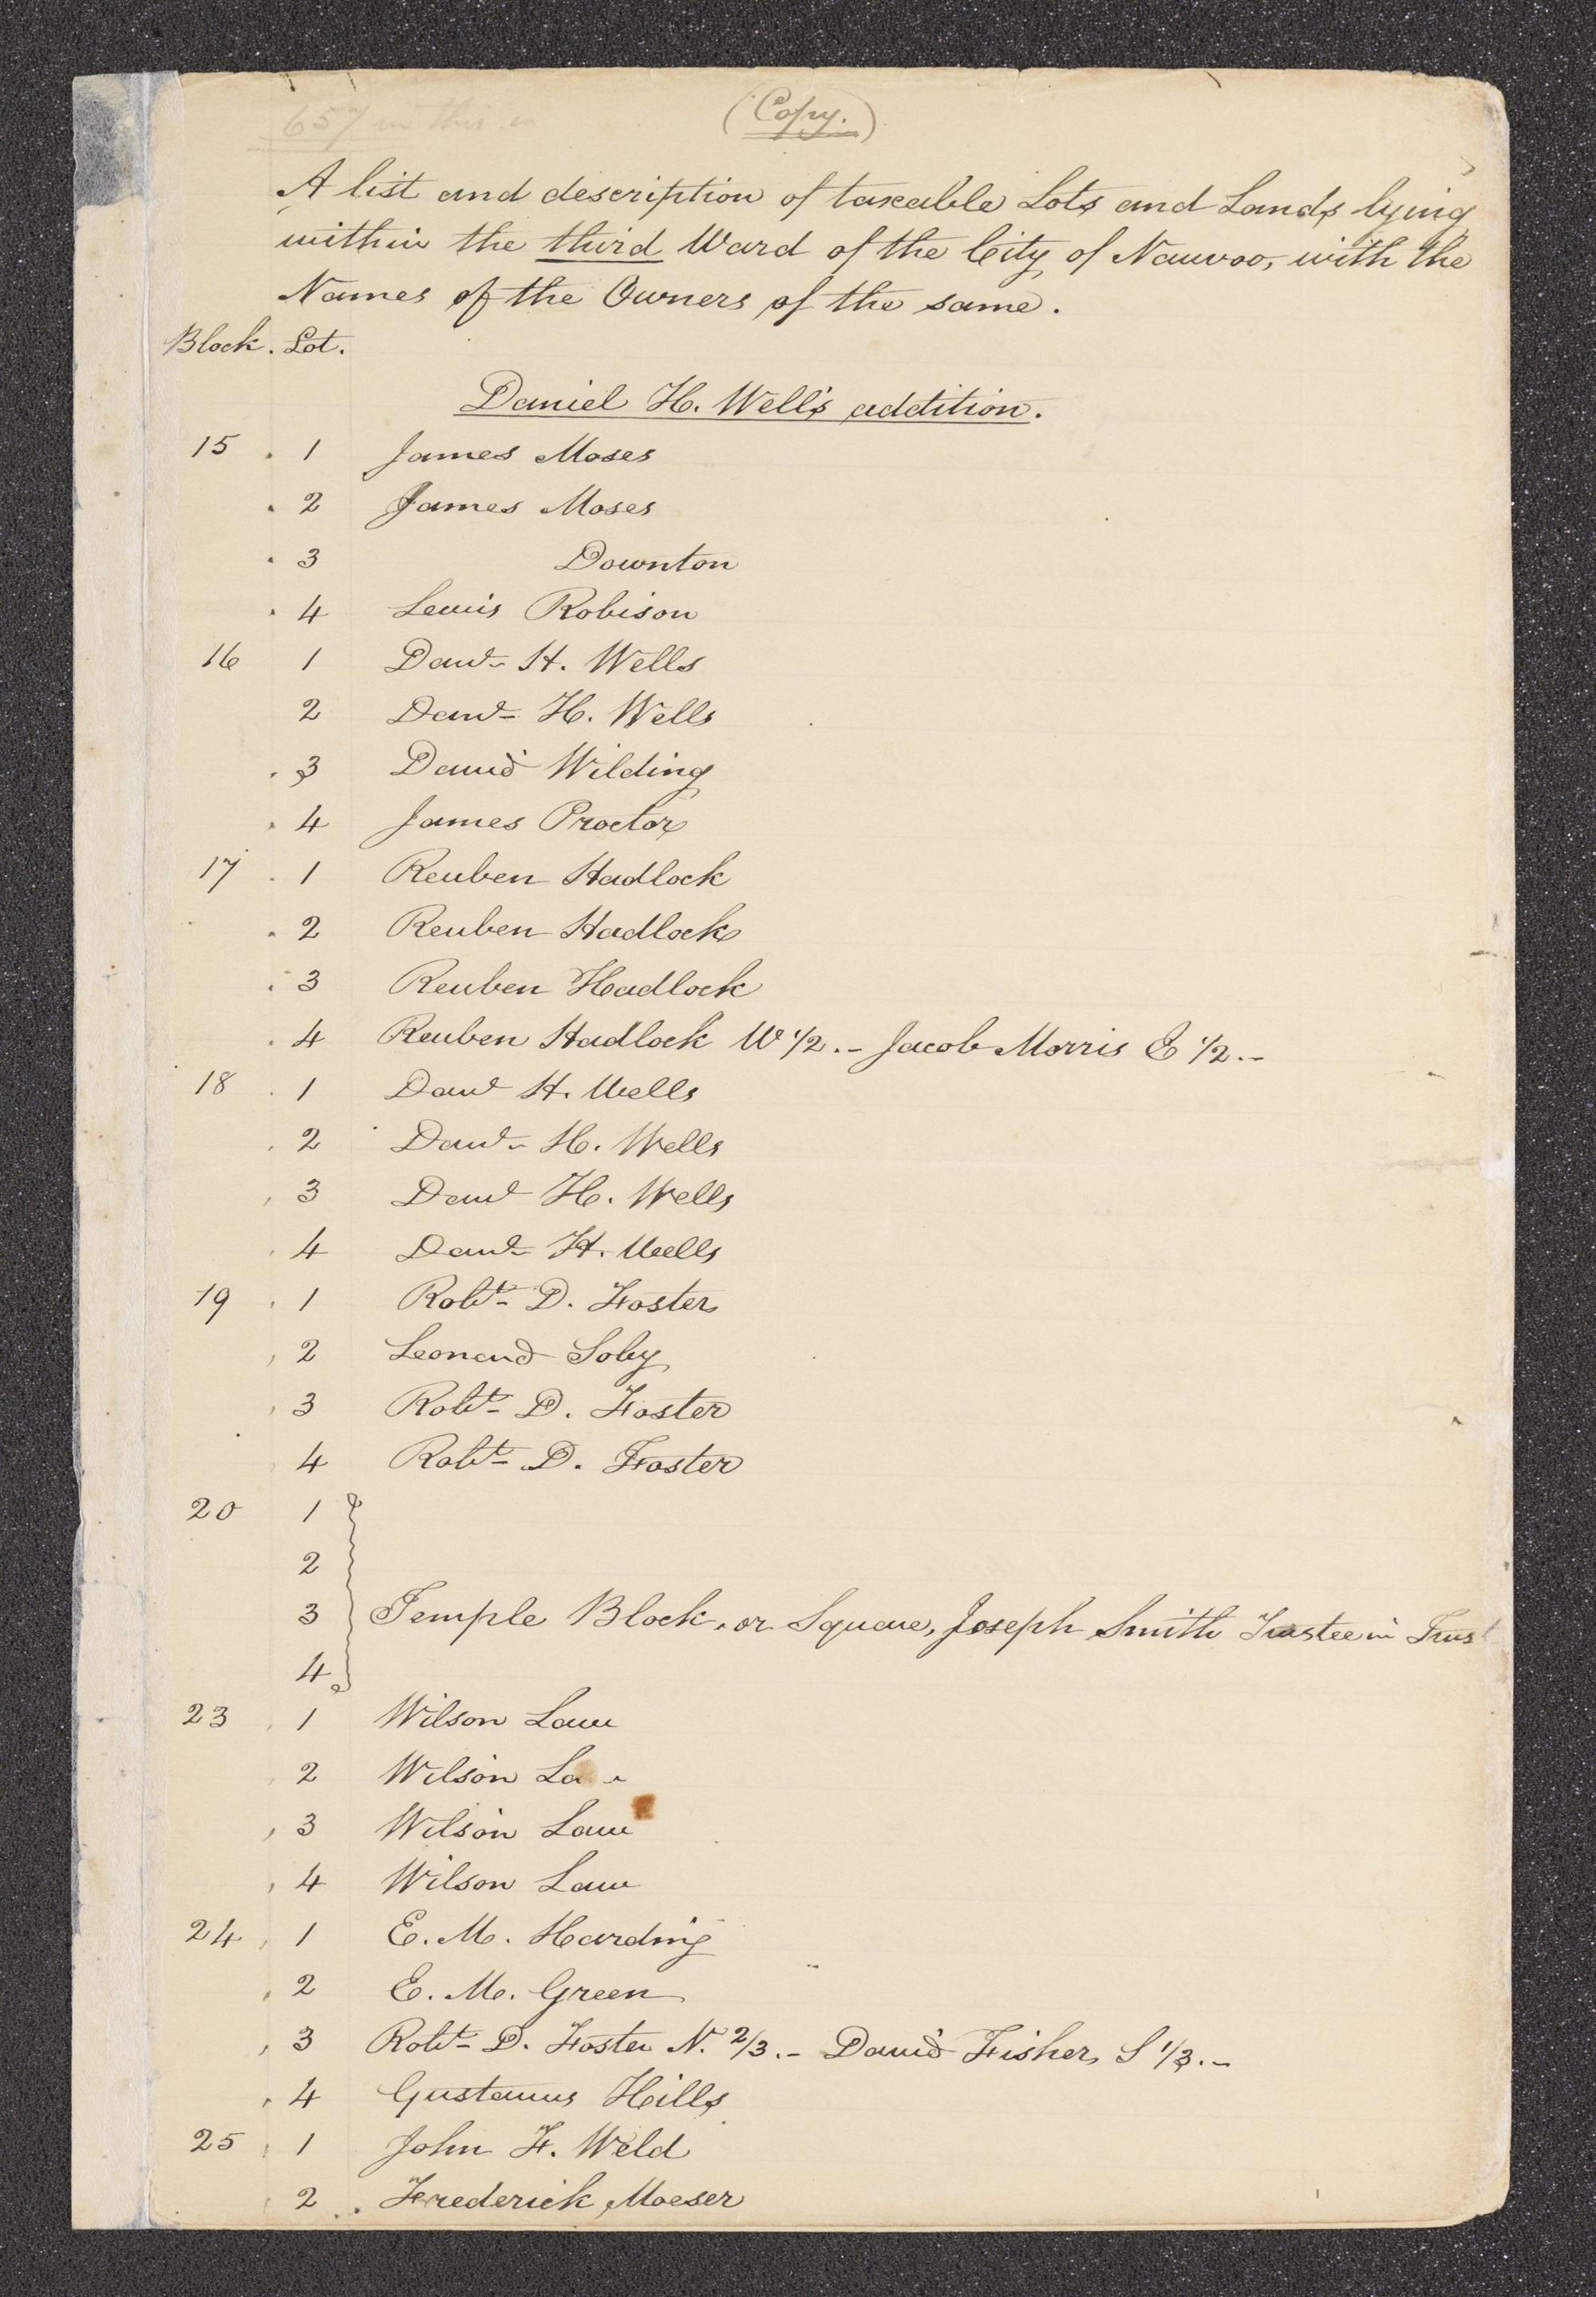 657 in this
(Copy.)
A list and description of taxable Lots and Lands lying
within the third Ward of the City of Nauvoo, with the
Names of the Owners of the same.
Block. Lot.
Daniel H. Wells addition.
15 . 1 James Moses
. 2 James Moses
. 3 Downton
. 4 Lewis Robison
16 1 Danl H. Wells
2 Danl H. Wells
. 3 David Wilding
. 4 James Proctor
17 . 1 Reuben Hadlock
. 2 Reuben Hadlock
. 3 Reuben Hadlock
. 4 Reuben Hadlock W 1/2 .- Jacob Morris E 1/2 .-
18 . 1 Danl H. Wells
. 2 Danl H. Wells
, 3 Danl H. Wells
. 4 Danl H. Wells
19 . 1 Robt D. Foster
, 2 Leonard Soby
, 3 Robt D. Foster
4 Robt D. Foster
20 1
2
3 Temple Block, or Square, Joseph Smith Trustee in Trust
4
23 , 1 Wilson Law
, 2 Wilson La
, 3 Wilson Law
, 4 Wilson Law
24 , 1 E. M. Harding
, 2 E. M. Green
, 3 Robt D. Foster N. 2/3 .- David Fisher S 1/3 .-
, 4 Gustavus Hills
25 , 1 John F. Weld
, 2 . Frederick Moeser